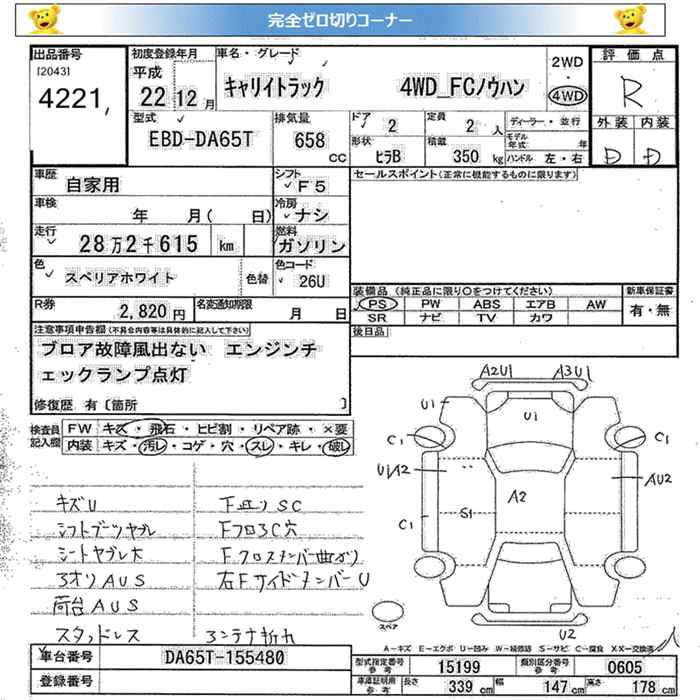 完全ゼロ切りコーナー
出品番号
[2043]
4221
初度登録年月
平成
22 12 月
車名・グレード
キャリイトラック 4WD_FCノウハン
2WD
・
4WD
評価点
R
型式
EBD-DA65T
排気量
658
CC
ドア
2
定員
2 人
ディーラー・並行
モデル年式 年
形状
ヒラB
積載
350 kg
ハンドル 左・右
外装 内装
D D
車歴
自家用
シフト
F5
セールスポイント(正常に機能するものに限ります)
車検
年 月( 日)
冷房
ナシ
走行
28万2千615 km
燃料
ガソリン
色
スペリアホワイト
色替
色コード
26U
R券
2,820 円
名変通知期限
月 日
装備品(純正品に限り○をつけてください)
新車保証書
PS PW ABS エアB AW
SR ナビ TV カワ
有・無
後日品
注意事項申告欄(不具合内容等は具体的に記入して下さい)
ブロア故障風出ない エンジンチ
ェックランプ点灯
修復歴 有〔箇所 〕
検査員
記入欄
FW キズ・飛石・ヒビ割・リペア跡・×要
内装 キズ・汚レ・コゲ・穴・スレ・キレ・破レ
キズU
シフトブーツヤブレ
シートヤブレ大
3オリAUS
荷台AUS
スタッドレス
下廻りSC
FフロアC穴
Fクロスメンバー曲がり
右FサイドメンバーU
コンテナ折力
A2U1 A3U1
U1
U1
C1 C1
U1/A2
AU2
A2
S1
C1
スペア
U2
A-キズ E-エクボ U-凹み W-補修跡 S-サビ C-腐食 XX-交換済
車台番号
DA65T-155480
登録番号
型式指定番号
参考
15199
類別区分番号
参考
0605
車庫証明用
参考
長さ 339 cm
幅 147 cm
高さ 178 cm